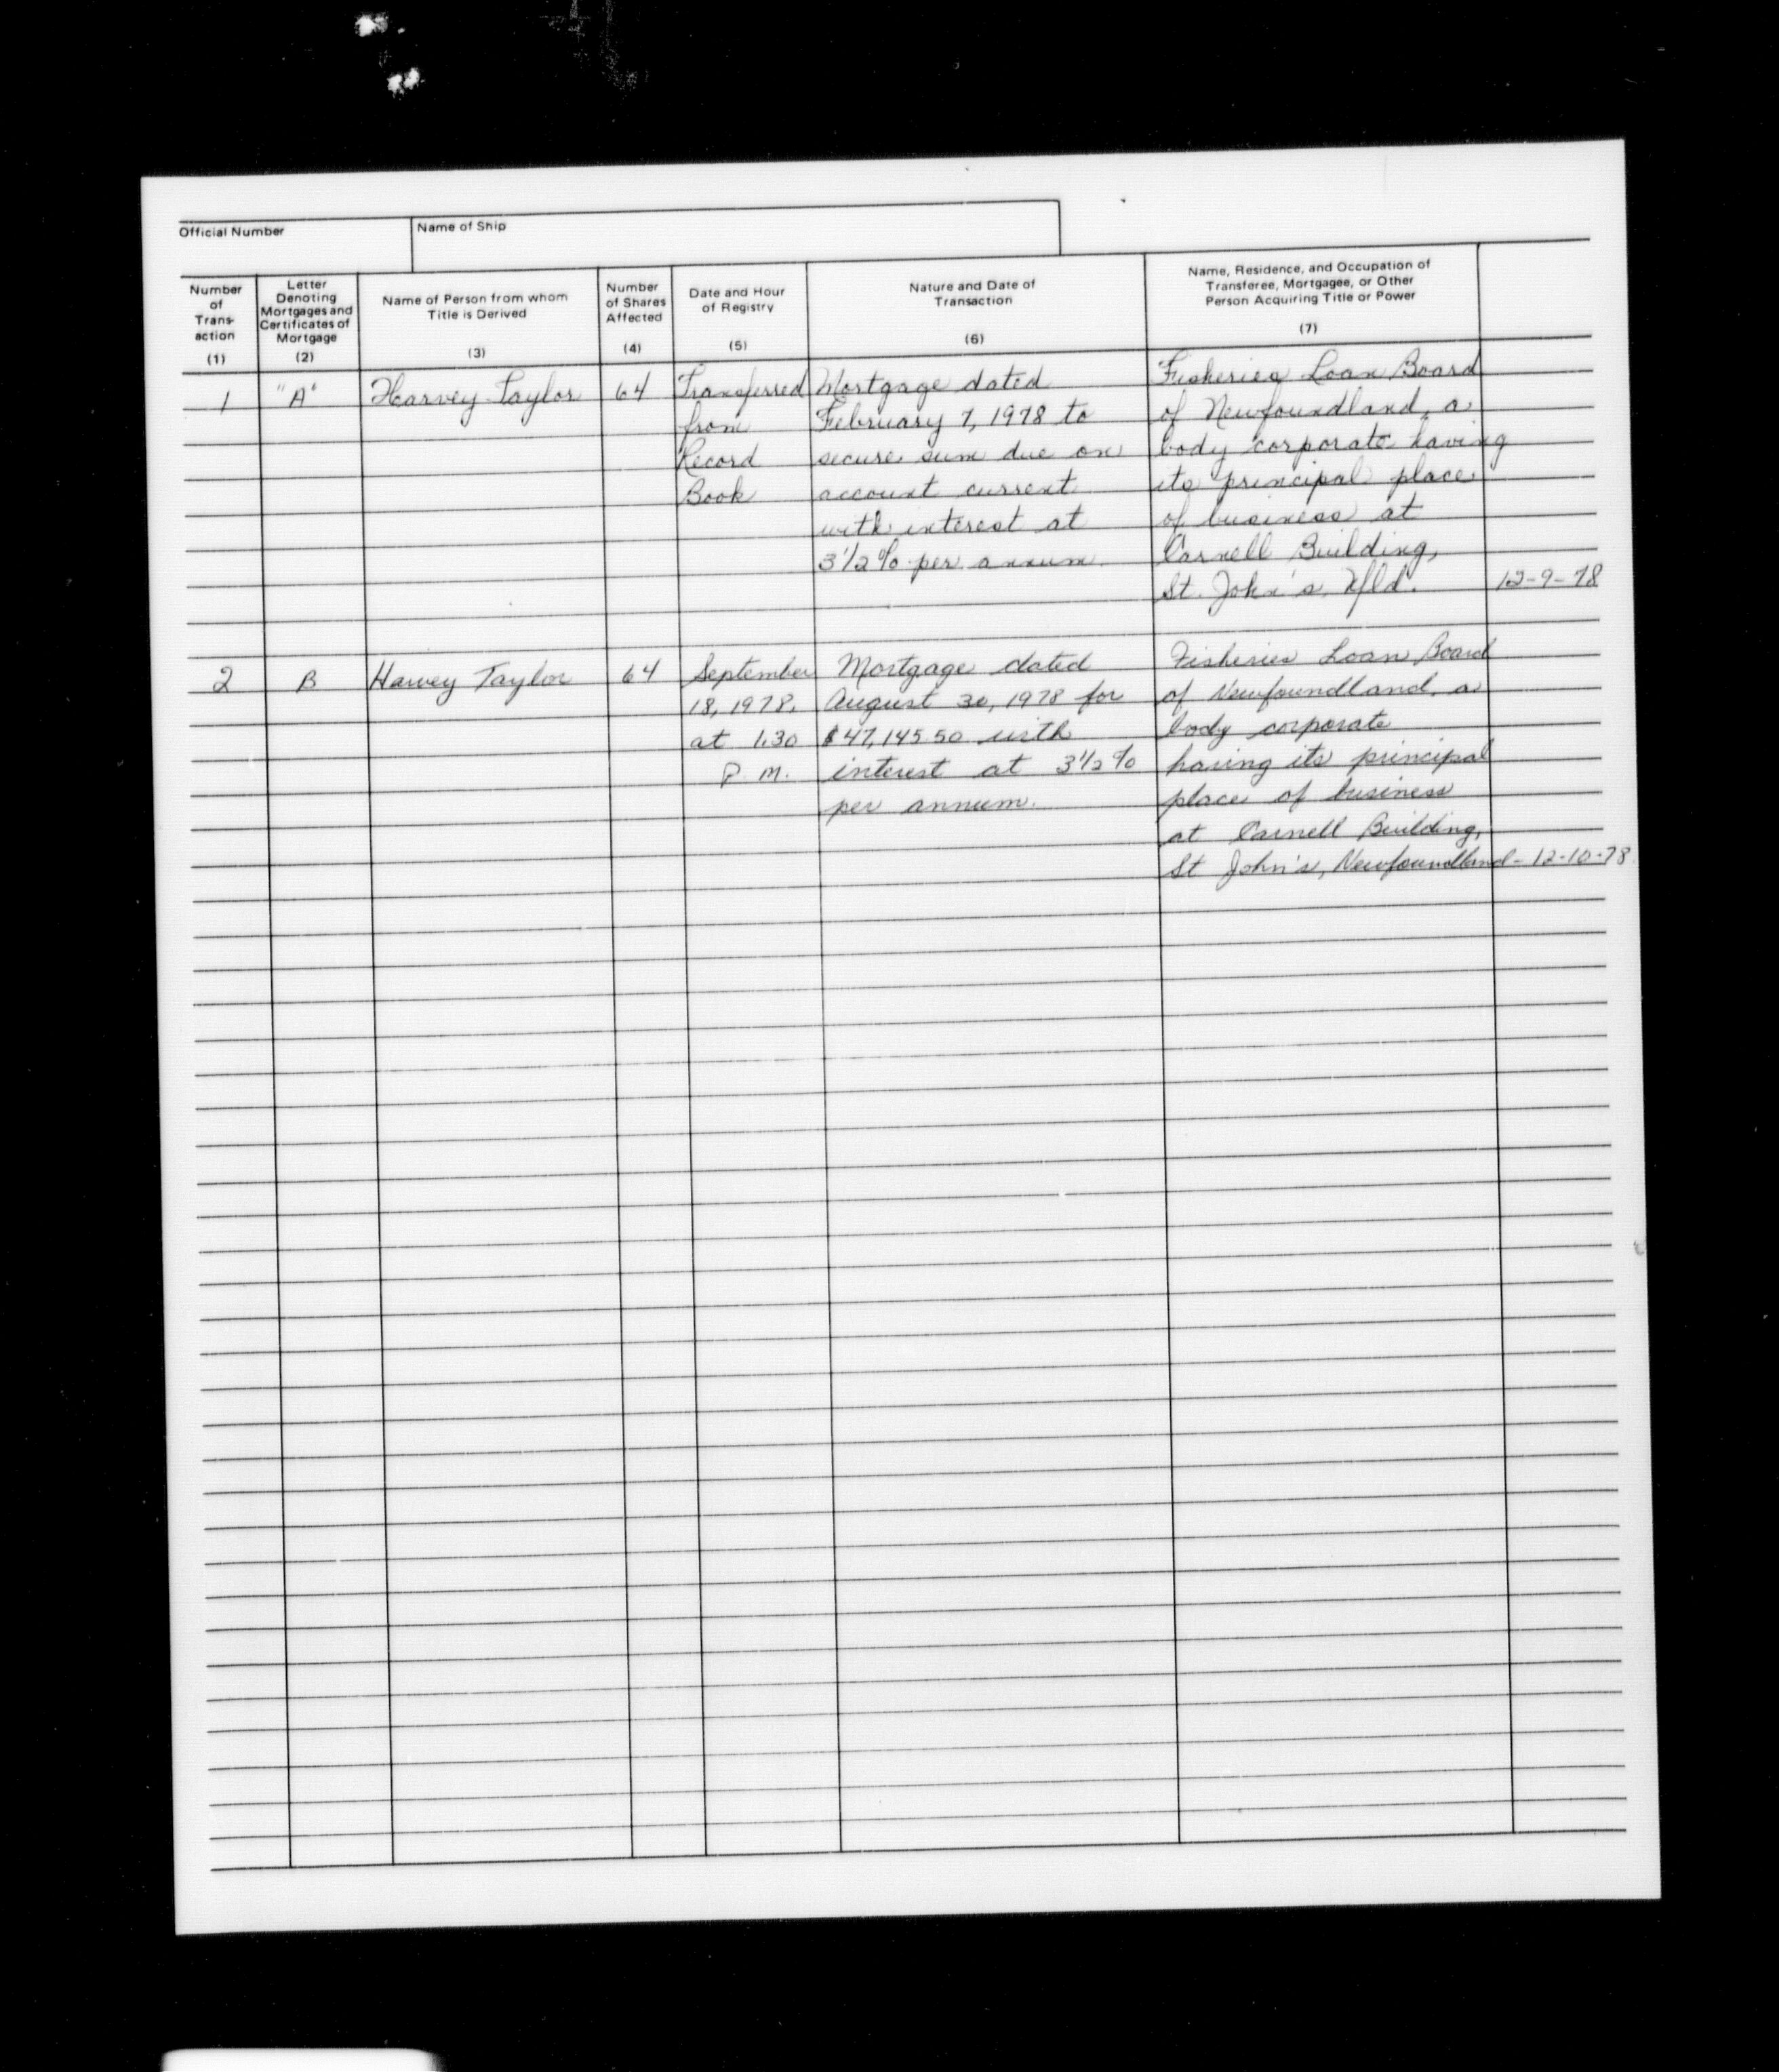 Official Number
Name of Ship
Number of Trans-action (1)
Letter Denoting Mortgages and Certificates of Mortgage (2)
Name of Person from whom Title is Derived (3)
Number of Shares Affected (4)
Date and Hour of Registry (5)
Nature and Date of Transaction (6)
Name, Residence, and Occupation of Transferee, Mortgagee, or Other Person Acquiring Title or Power (7)
1
"A"
Harvey Taylor
64
Transferred
from
Record
Book
Mortgage dated
February 7, 1978 to
secure sum due on
account current
with interest at
3 1/2 % per annum.
Fisheries Loan Board
of Newfoundland, a
body corporate having
its principal place
of business at
Carnell Building,
St. John's, Nfld.
12-9-78
2
B
Harvey Taylor
64
September
18, 1978,
at 1.30
P.M.
Mortgage dated
August 30, 1978 for
$47,145.50 with
interest at 3 1/2 %
per annum.
Fisheries Loan Board
of Newfoundland, a
body corporate
having its principal
place of business
at Carnell Building,
St John's, Newfoundland - 12-10-78